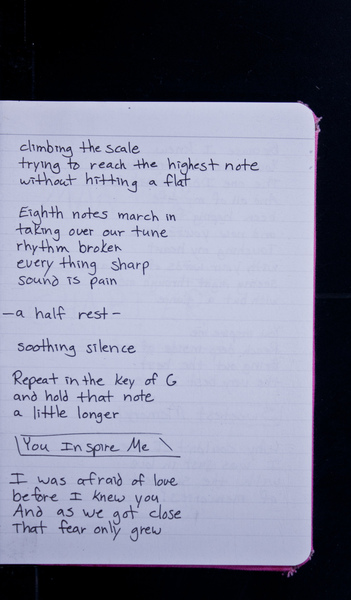 climbing the scale
trying to reach the highest note
without hitting a flat
Eighth notes march in
taking over our tune
rhythm broken
every thing sharp
sound is pain
—a half rest—
soothing silence
Repeat in the key of G
and hold that note
a little longer
You Inspire Me
I was afraid of love
before I knew you
And as we got close
That fear only grew